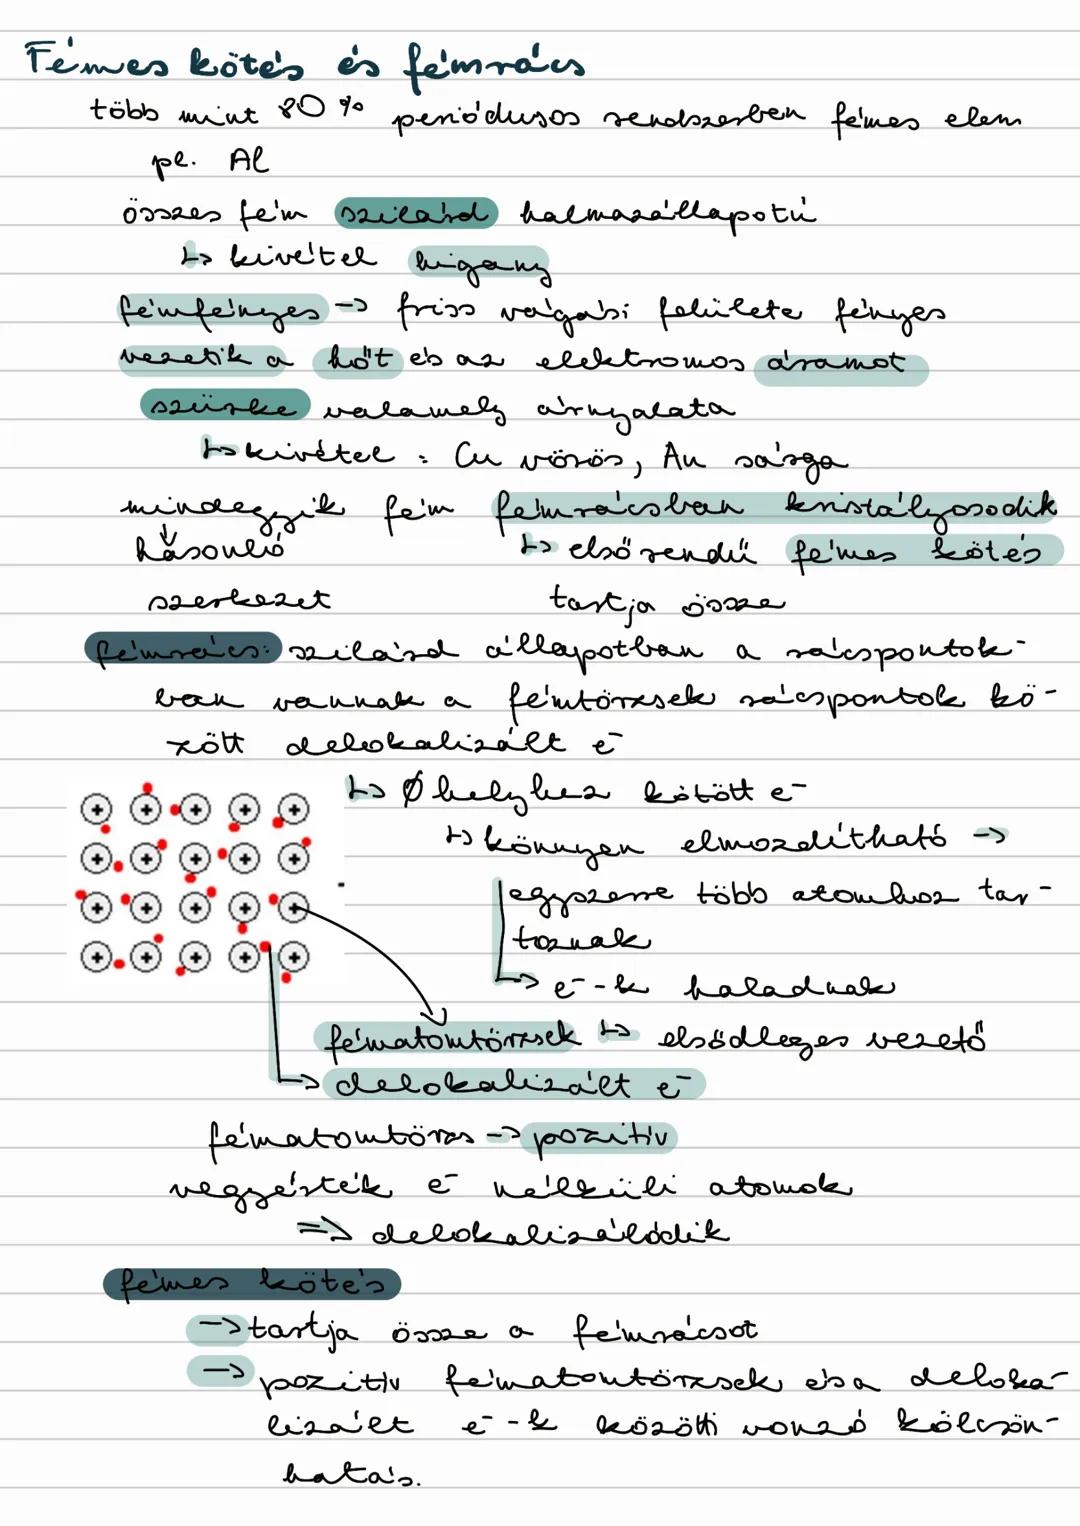 Fémes kötés és fémrács
több mint 80 % periódusos rendszerben fémes elem
pl. Al
összes fém szilárd halmazállapotú
↳ kivétel higany
fémfényes -> friss vágási felülete fényes
vezetik a hőt és az elektromos áramot
szürke valamely árnyalata
↳ kivétel : Cu vörös, Au sárga
mindegyik fém fémrácsban kristályosodik
↓
hasonló ↳ elsőrendű fémes kötés
szerkezet tartja össze
fémrács: szilárd állapotban a rácspontok-
ban vannak a fémtörzsek rácspontok kö-
zött delokalizált e⁻
↳ Ø helyhez kötött e⁻
↳ könnyen elmozdítható ->
egyszerre több atomhoz tar-
toznak
-> e⁻-k haladnak
fématomtörzsek ↳ elsődleges vezető
-> delokalizált e⁻
fématomtörzs -> pozitiv
vegyérték e⁻ nélküli atomok
=> delokalizálódik
fémes kötés
-> tartja össze a fémrácsot
-> pozitiv fématomtörzsek és a deloka-
lizált e⁻-k közötti vonzó kölcsön-
hatás.